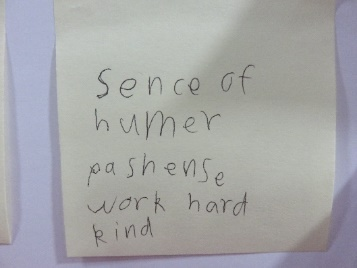 Sence of
humer
pashense
work hard
kind